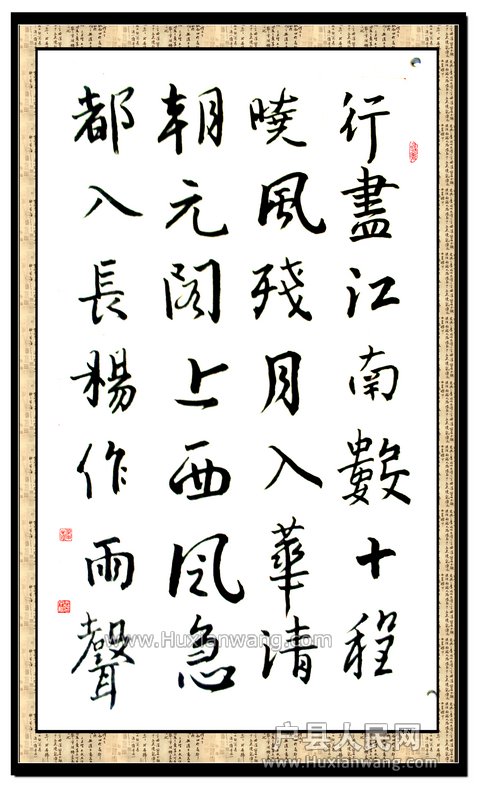 行盡江南數十程
曉風殘月入華清
朝元閣上西风急
都入長楊作雨聲
www.Huxianwang.com
户县人民网
www.Huxianwang.com